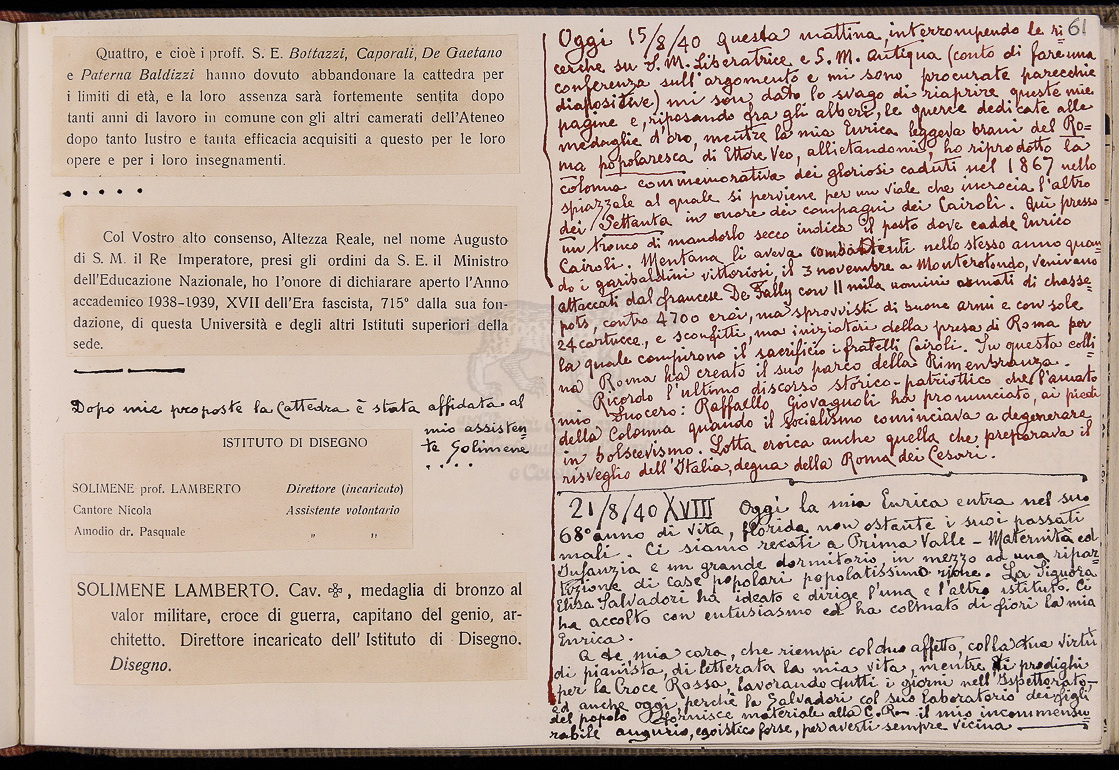 Quattro, e cioè i proff. S. E. Bottazzi, Caporali, De Gaetano
e Paterna Baldizzi hanno dovuto abbandonare la cattedra per
i limiti di età, e la loro assenza sarà fortemente sentita dopo
tanti anni di lavoro in comune con gli altri camerati dell'Ateneo
dopo tanto lustro e tanta efficacia acquisiti a questo per le loro
opere e per i loro insegnamenti.
. . . . .
Col Vostro alto consenso, Altezza Reale, nel nome Augusto
di S. M. il Re Imperatore, presi gli ordini da S. E. il Ministro
dell'Educazione Nazionale, ho l'onore di dichiarare aperto l'Anno
accademico 1938-1939, XVII dell'Era fascista, 715° dalla sua fon-
dazione, di questa Università e degli altri Istituti superiori della
sede.
Dopo mie proposte la Cattedra è stata affidata al
mio assisten-
te Solimene
. . . .
ISTITUTO DI DISEGNO
SOLIMENE prof. LAMBERTO Direttore (incaricato)
Cantore Nicola Assistente volontario
Amodio dr. Pasquale " "
SOLIMENE LAMBERTO. Cav. ✠, medaglia di bronzo al
valor militare, croce di guerra, capitano del genio, ar-
chitetto. Direttore incaricato dell' Istituto di Disegno.
Disegno.
61
Oggi 15/8/40 questa mattina, interrompendo le ri
cerche su S. M. Liberatrice e S. M. Antiqua (conto di fare una
conferenza sull'argomento e mi sono procurate parecchie
diapositive) mi son dato lo svago di riaprire queste mie
pagine e, riposando fra gli alberi, le querce dedicate alle
medaglie d'oro, mentre la mia Enrica leggeva brani del Ro=
ma popolaresca di Ettore Veo, allietandomi, ho riprodotto la
colonna commemorativa dei gloriosi caduti nel 1867 nello
spiazzale al quale si perviene per un viale che incrocia l'altro
dei Settanta in onore dei compagni dei Cairoli. Qui presso
un tronco di mandorlo secco indica il posto dove cadde Enrico
Cairoli. Mentana li aveva combattenti nello stesso anno quan
do i garibaldini vittoriosi, il 3 novembre a Monterotondo, venivano
attaccati dal francese De Fally con 11 mila uomini armati di chasse=
pots, contro 4700 eroi, ma sprovvisti di buone armi e con sole
24 cartucce, e sconfitti, ma iniziatori della presa di Roma per
la quale compirono il sacrificio i fratelli Cairoli. In questa colli
na Roma ha creato il suo parco della Rimembranza.
Ricordo l'ultimo discorso storico-patriottico che l'amato
mio Suocero: Raffaello Giovagnoli ha pronunciato, ai piedi
della Colonna quando il socialismo cominciava a degenerare
in bolscevismo. Lotta eroica anche quella che preparava il
risveglio dell'Italia, degna della Roma dei Cesari.
21/8/40 XVIII Oggi la mia Enrica entra nel suo
68° anno di vita, florida non ostante i suoi passati
mali. Ci siamo recati a Prima Valle - Maternità ed
Infanzia e un grande dormitorio, in mezzo ad una ripar=
tizione di case popolari popolatissimo. La Signora
Elisa Salvadori ha ideato e dirige l'una e l'altro istituto. Ci
ha accolto con entusiasmo ed ha colmato di fiori la mia
Enrica.
A te mia cara, che riempi col tuo affetto, colla tua virtù
di pianista, di letterata la mia vita, mentre ti prodighi
per la Croce Rossa, lavorando tutti i giorni nell'Ispettorato,
ed anche oggi perchè la Salvadori col suo laboratorio dei figli
del popolo fornisce materiale alla C.R. il mio incommensu
rabile augurio, egoistico forse, per averti sempre vicina